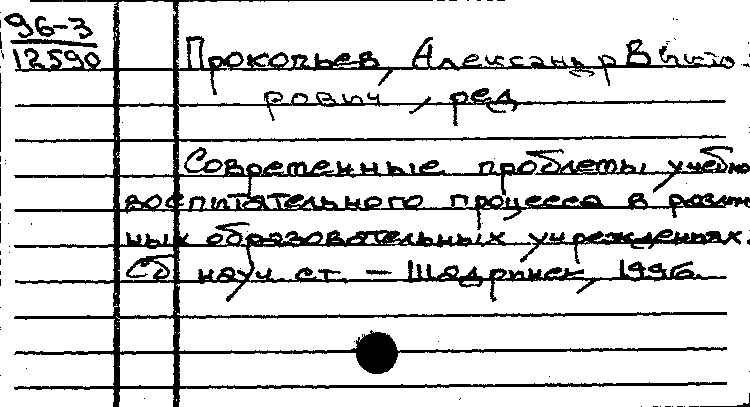 96-3
12590
Прокопьев, Александр Викто-
рович, ред
Современные проблемы учебно
воспитательного процесса в различ
ных образовательных учреждениях.
Сб науч. ст. — Шадринск, 1996.